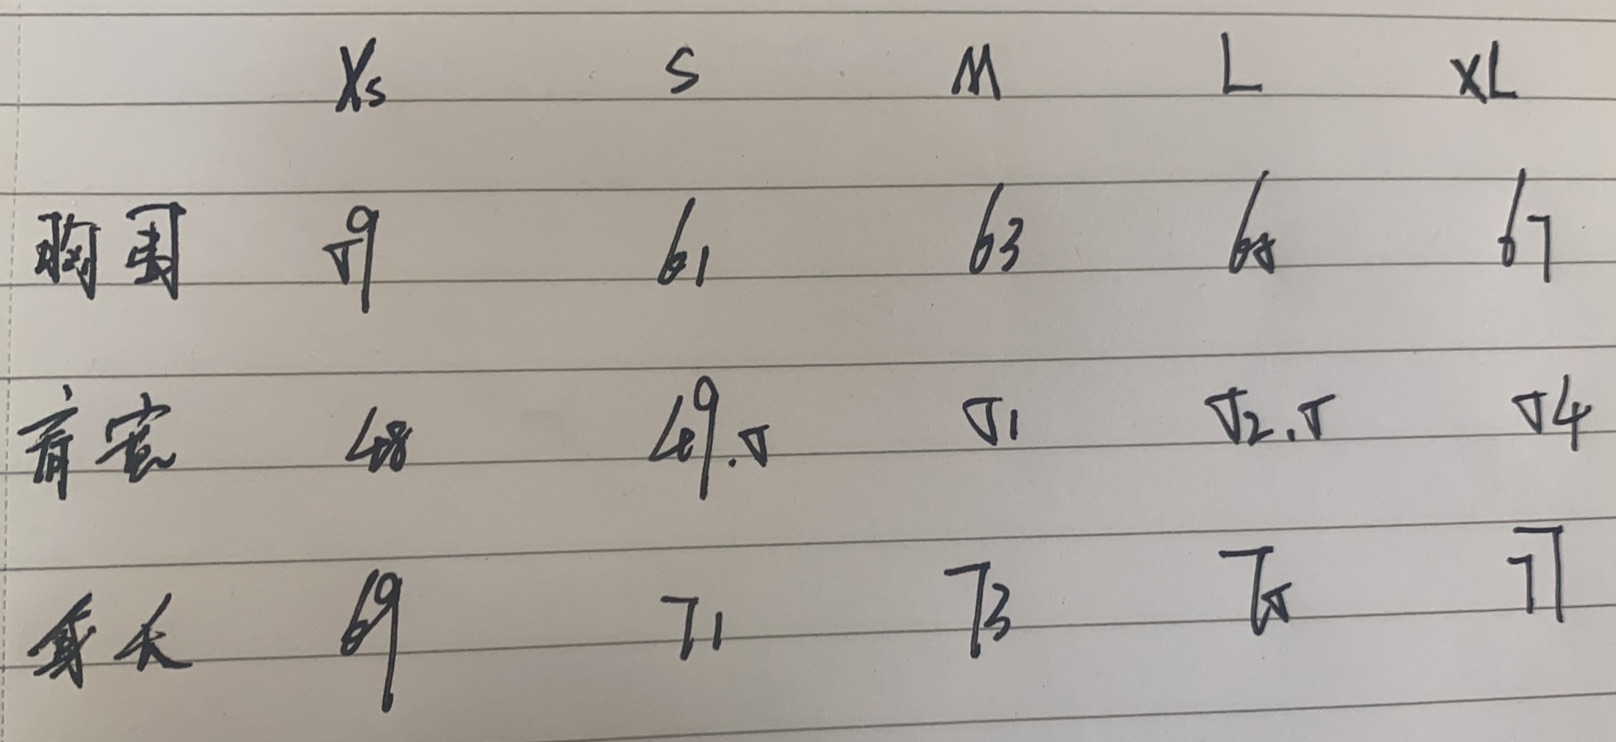 Xs S M L XL
胸围 59 61 63 65 67
肩宽 48 49.5 51 52.5 54
身长 69 71 73 75 77